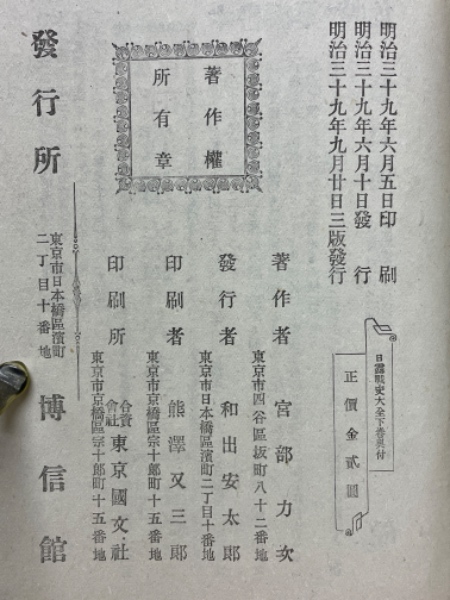 明治三十九年六月五日印刷
明治三十九年六月十日發行
明治三十九年九月廿日三版發行
日露戰史大全下卷奧付
正價金貳圓
著作權
所有章
著作者 宮部力次
東京市四谷區坂町八十二番地
發行者 和出安太郎
東京市日本橋區濱町二丁目十番地
印刷者 熊澤又三郎
東京市京橋區宗十郎町十五番地
印刷所 合資會社 東京國文社
東京市京橋區宗十郎町十五番地
發行所 東京市日本橋區濱町二丁目十番地 博信館